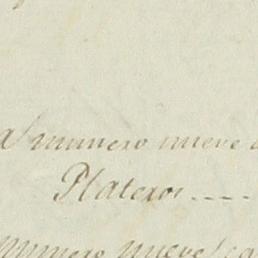 numero nueve
Plateros....
numero nueve ca